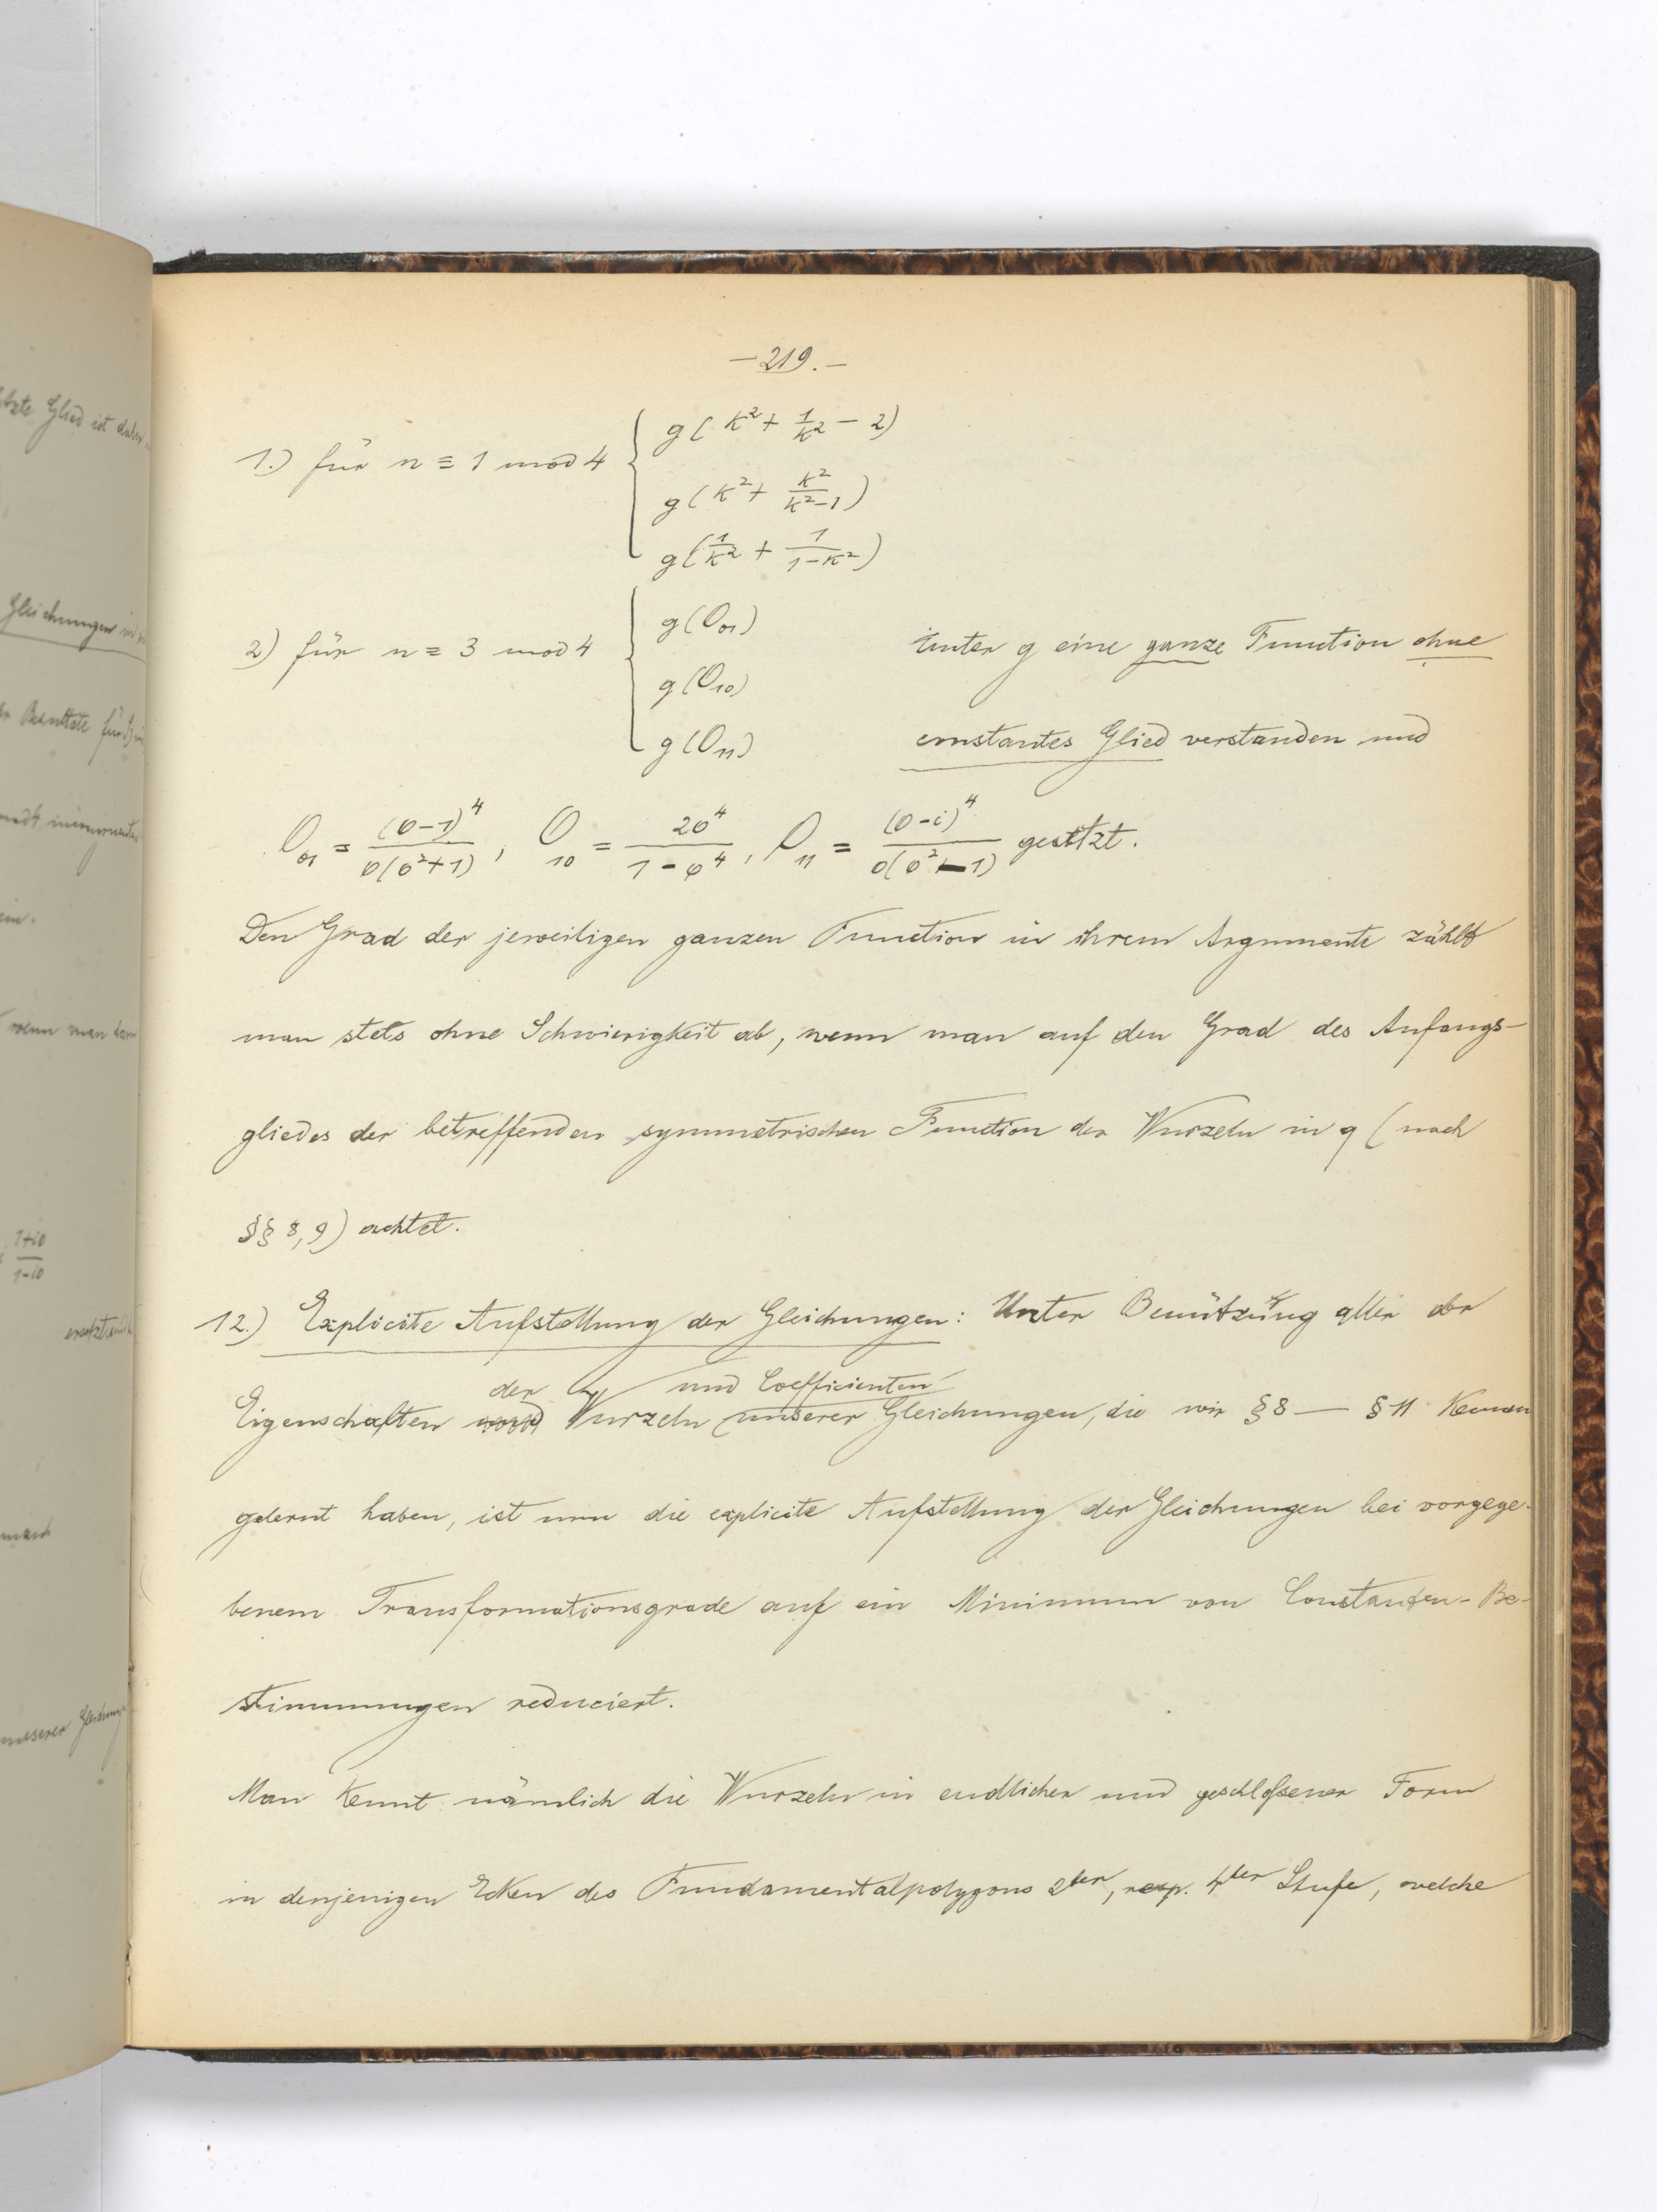 — 219. —
1.) für n ≡ 1 mod 4 { g(k² + 1/k² − 2)
g(k² + k²/(k²−1))
g(1/k² + 1/(1−k²))
2) für n ≡ 3 mod 4 { g(O₀₁)
g(O₁₀)
g(O₁₁)
unter g eine ganze Function ohne
constantes Glied verstanden und
O₀₁ = (σ−1)⁴/σ(σ²+1), O₁₀ = 2σ⁴/1−σ⁴, O₁₁ = (σ−i)⁴/σ(σ²−1) gesetzt.
Den Grad der jeweiligen ganzen Function in ihrem Argumente zählt
man stets ohne Schwierigkeit ab, wenn man auf den Grad des Anfangs-
gliedes der betreffenden symmetrischen Function der Wurzeln in q (nach
§§ 8, 9) achtet.
12.) Explicite Aufstellung der Gleichungen: Unter Benützung aller der
der und Coefficienten
Eigenschaften Wurzeln unserer Gleichungen, die wir § 8 — § 11 kennen
gelernt haben, ist nun die explicite Aufstellung der Gleichungen bei vorgege-
benem Transformationsgrade auf ein Minimum von Constanten-Be-
stimmungen reduciert.
Man kennt nämlich die Wurzeln in endlicher und geschloßener Form
in denjenigen Ecken des Fundamentalpolygons 2ter, resp. 4ter Stufe, welche
tzte Glied ist daher
Gleichungen
Resultate für
mod 4
ein.
wenn man
1+iσ
1−iσ
unserer Gleichung